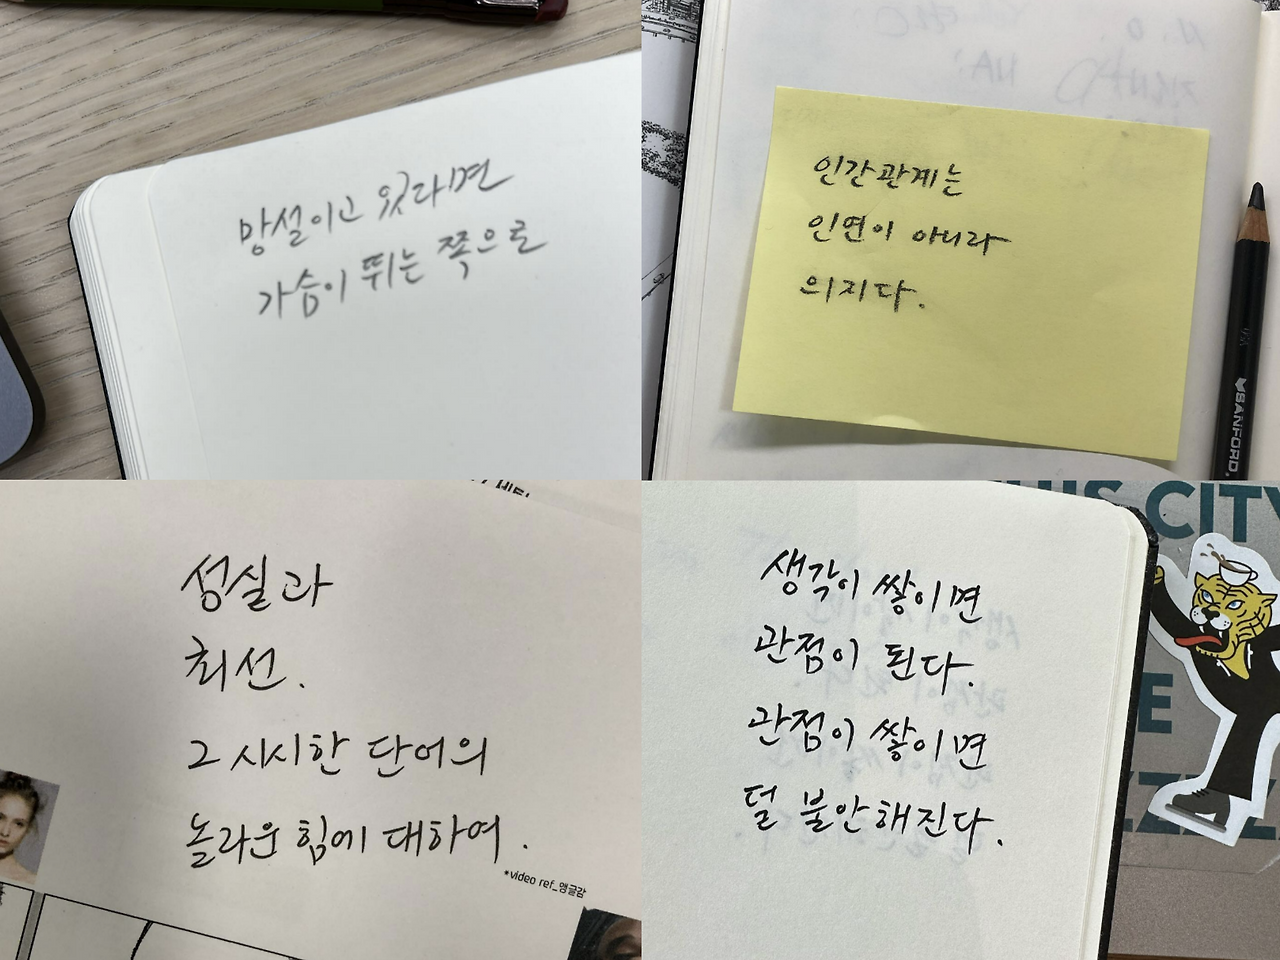 망설이고 있다면
가슴이 뛰는 쪽으로
인간관계는
인연이 아니라
의지다.
SANFORD.
성실과
최선.
그 시시한 단어의
놀라운 힘에 대하여.
*video ref_앵글감
생각이 쌓이면
관점이 된다.
관점이 쌓이면
덜 불안해진다.
CITY